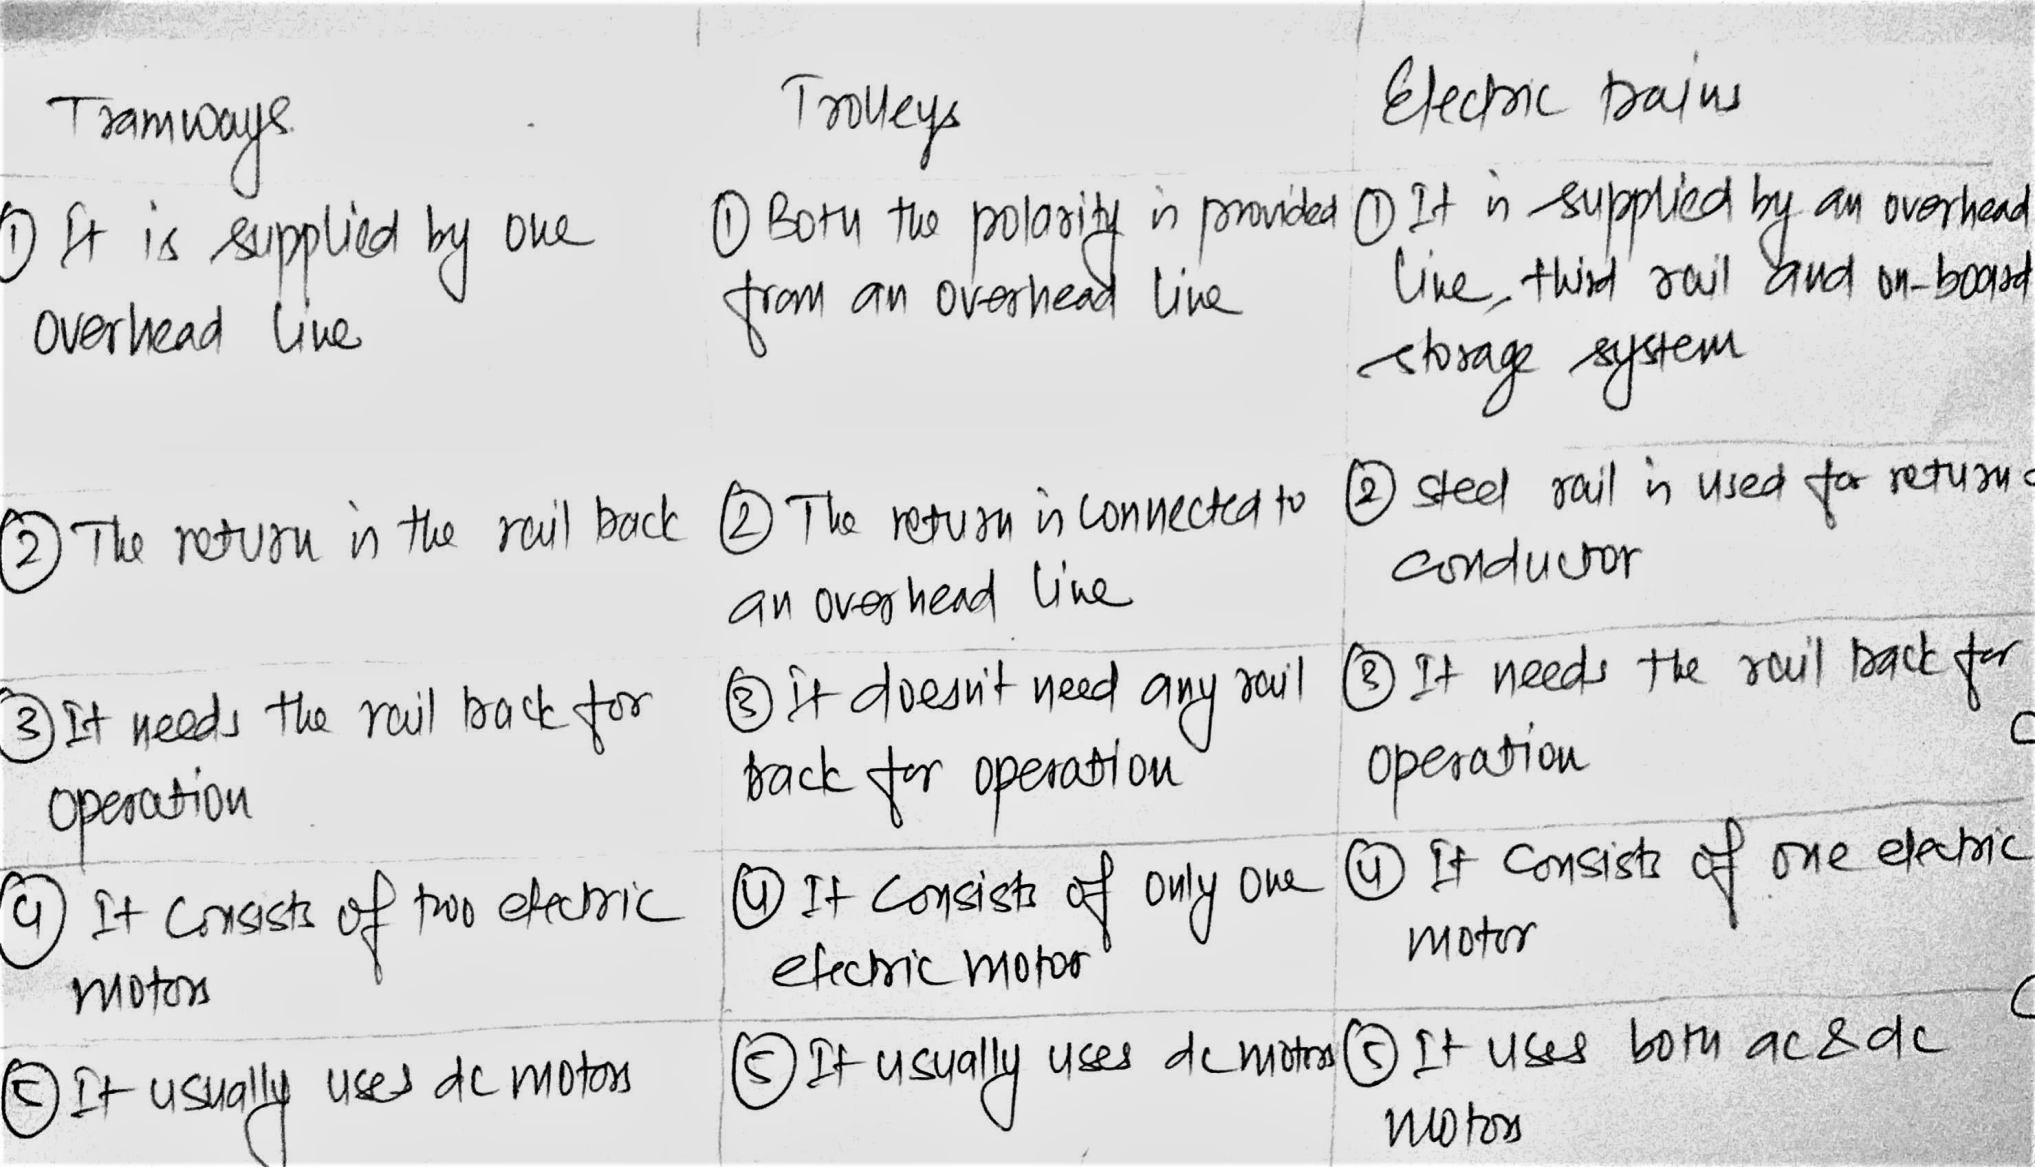 Tramways
Trolleys
Electric trains
① It is supplied by one
overhead line
① Both the polarity is provided
from an overhead line
① It is supplied by an overhead
line, third rail and on-board
storage system
② The return is the rail track
② The return is connected to
an overhead line
② steel rail is used for return
conductor
③ It needs the rail track for
operation
③ it doesn't need any rail
track for operation
③ It needs the rail track for
operation
④ It consists of two electric
motors
④ It consists of only one
electric motor
④ It consists of one electric
motor
⑤ It usually uses dc motors
⑤ It usually uses dc motors
⑤ It uses both ac & dc
motors